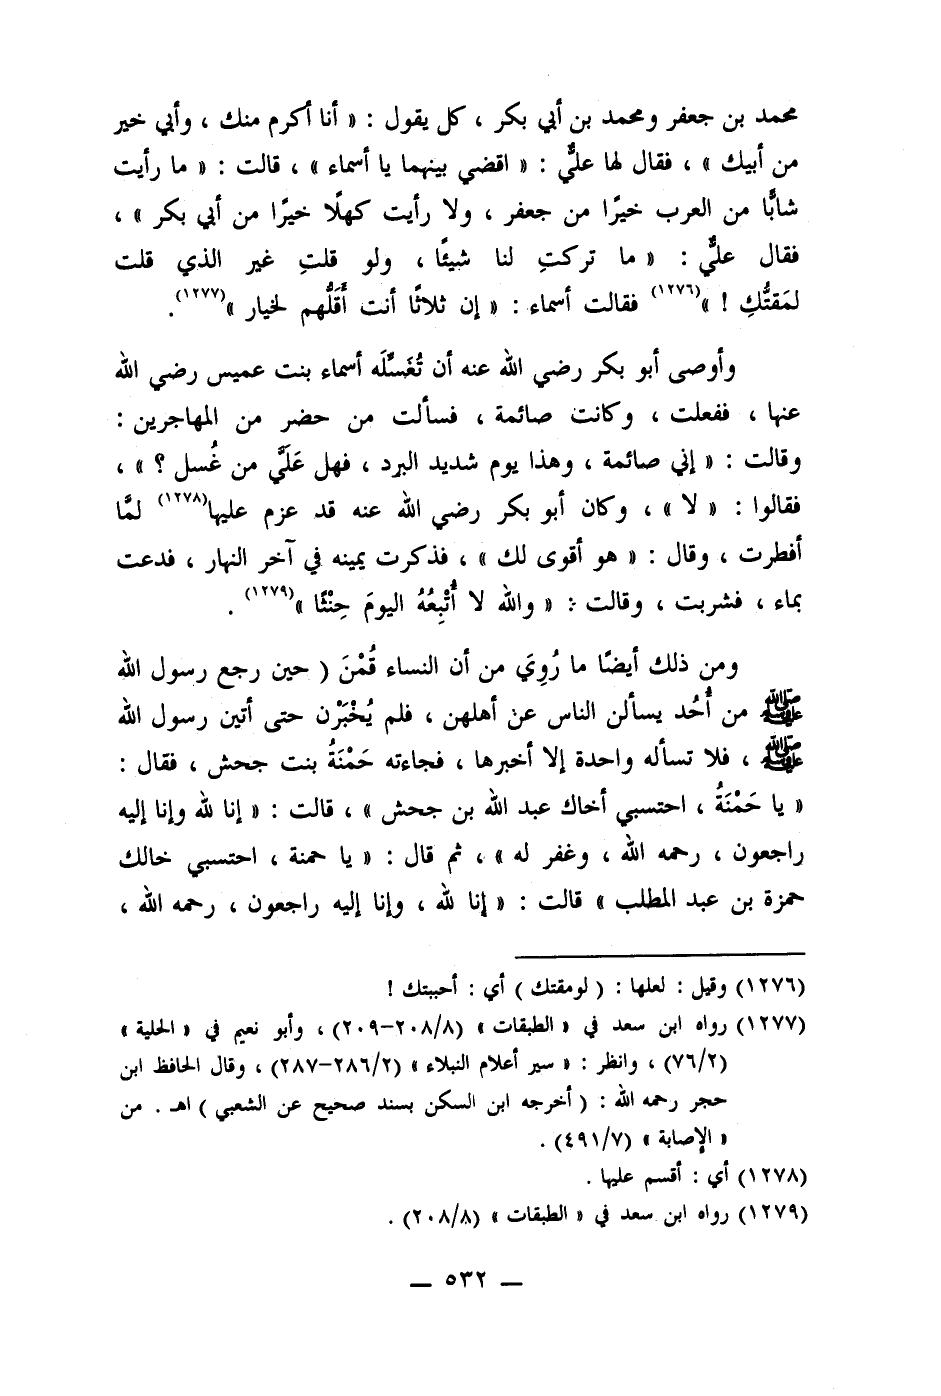 محمد بن جعفر ومحمد بن أبي بكر ، كل يقول : « أنا أكرم منك ، وأبي خير
من أبيك » ، فقال لها عليٌّ : « اقضي بينهما يا أسماء » ، قالت : « ما رأيت
شابًّا من العرب خيرًا من جعفر ، ولا رأيت كهلًا خيرًا من أبي بكر » ،
فقال عليٌّ : « ما تركتِ لنا شيئًا ، ولو قلتِ غير الذي قلت
لمَقتُّكِ ! »(١٢٧٦) فقالت أسماء : « إن ثلاثًا أنت أَقَلُّهم لخيار »(١٢٧٧) .
وأوصى أبو بكر رضي الله عنه أن تُغَسِّلَه أسماء بنت عميس رضي الله
عنها ، ففعلت ، وكانت صائمة ، فسألت من حضر من المهاجرين :
وقالت : « إني صائمة ، وهذا يوم شديد البرد ، فهل عَلَيَّ من غُسل ؟ » ،
فقالوا : « لا » ، وكان أبو بكر رضي الله عنه قد عزم عليها(١٢٧٨) لمَّا
أفطرت ، وقال : « هو أقوى لك » ، فذكرت يمينه في آخر النهار ، فدعت
بماء ، فشربت ، وقالت : « والله لا أُتْبِعُهُ اليومَ حِنْثًا »(١٢٧٩) .
ومن ذلك أيضًا ما رُوِيَ من أن النساء قُمْنَ ( حين رجع رسول الله
ﷺ من أُحُد يسألن الناس عن أهلهن ، فلم يُخْبَرْن حتى أتين رسول الله
ﷺ ، فلا تسأله واحدة إلا أخبرها ، فجاءته حَمْنَةُ بنت جحش ، فقال :
« يا حَمْنَةُ ، احتسبي أخاك عبد الله بن جحش » ، قالت : « إنا لله وإنا إليه
راجعون ، رحمه الله ، وغفر له » ، ثم قال : « يا حمنة ، احتسبي خالك
حمزة بن عبد المطلب » قالت : « إنا لله ، وإنا إليه راجعون ، رحمه الله ،
(١٢٧٦) وقيل : لعلها : ( لومقتك ) أي : أحببتك !
(١٢٧٧) رواه ابن سعد في « الطبقات » (٢٠٨/٨-٢٠٩) ، وأبو نعيم في « الحلية »
(٧٦/٢) ، وانظر : « سير أعلام النبلاء » (٢٨٦/٢-٢٨٧) ، وقال الحافظ ابن
حجر رحمه الله : ( أخرجه ابن السكن بسند صحيح عن الشعبي ) اهـ . من
« الإصابة » (٤٩١/٧) .
(١٢٧٨) أي : أقسم عليها .
(١٢٧٩) رواه ابن سعد في « الطبقات » (٢٠٨/٨) .
— ٥٣٢ —